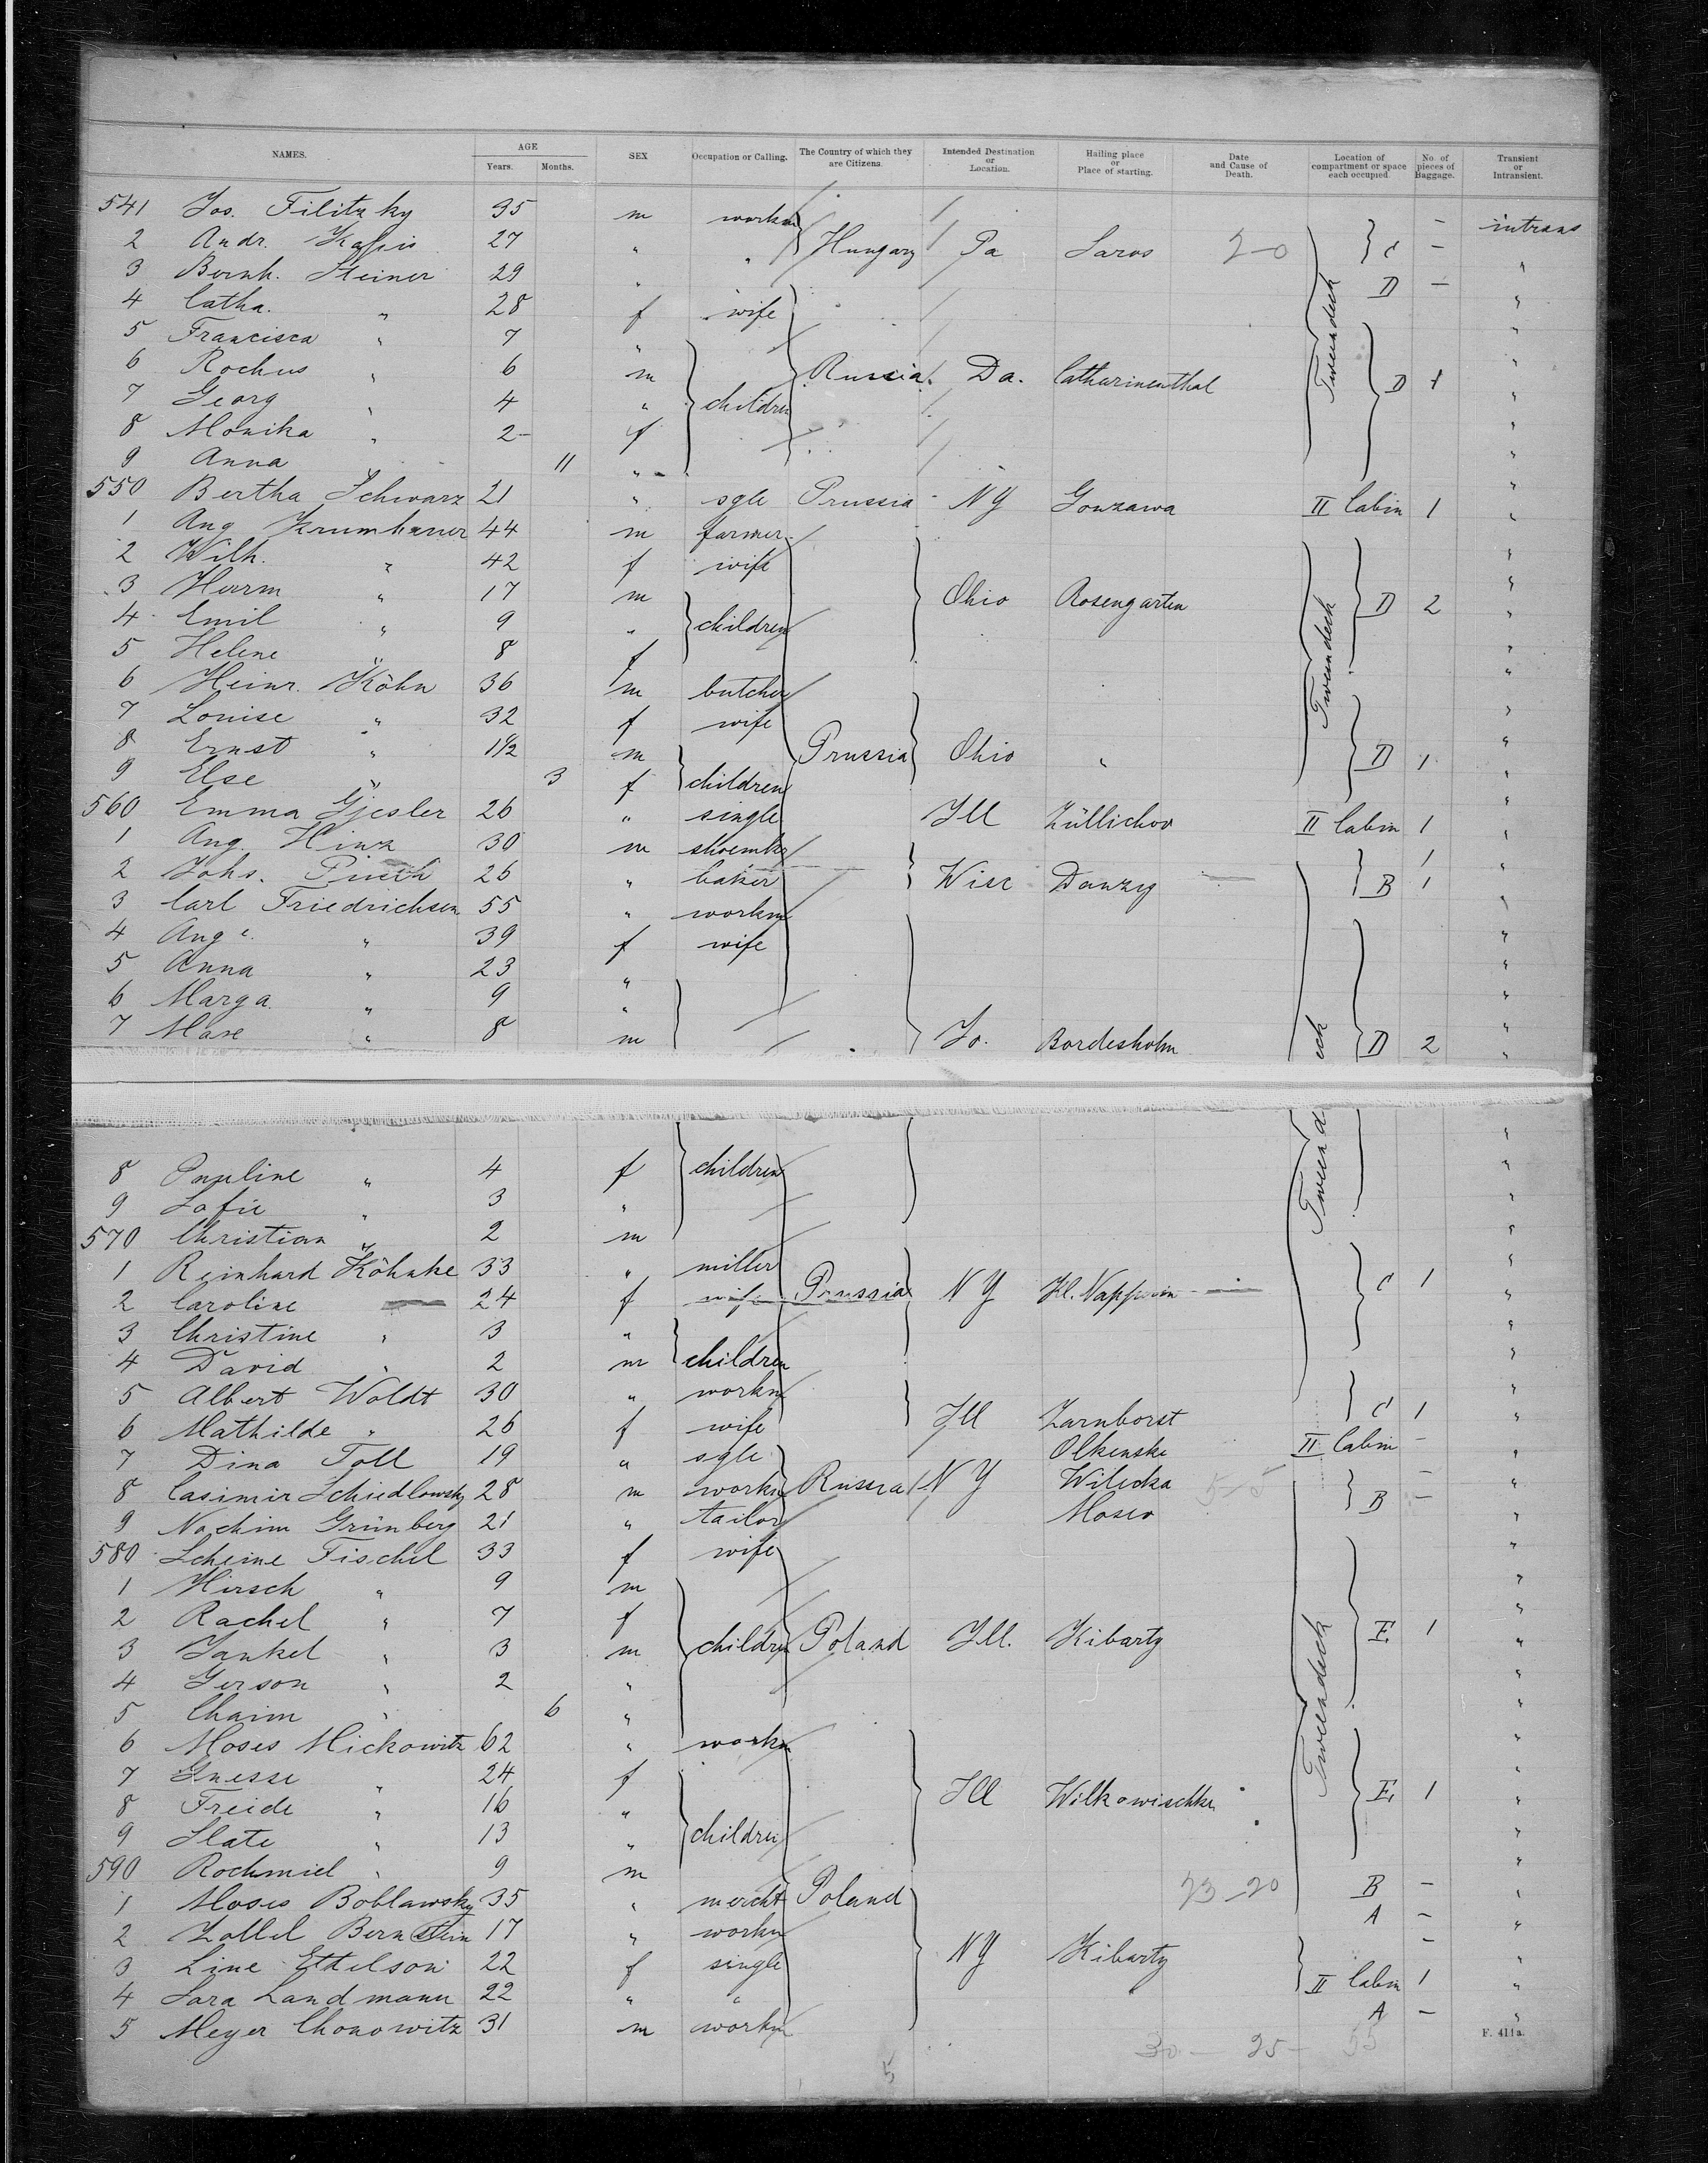 NAMES. AGE Years. Months. SEX Occupation or Calling. The Country of which they are Citizens. Intended Destination or Location. Hailing place or Place of starting. Date and Cause of Death. Location of compartment or space each occupied. No. of pieces of Baggage. Transient or Intransient.
541 Jos. Filitzky 35 m workm intrans
2 Andr. 27 " " Hungary Pa Saros 2-0 C - "
3 Bernh. Steiner 29 " D - "
4 Catha. " 28 f wife "
5 Francisca " 7 " "
6 Rochus " 6 m Russia. Da. Catharinenthal Tweendeck D 1 "
7 Georg " 4 " children "
8 Monika " 2 f "
9 Anna 11 " "
550 Bertha Schwarz 21 " sgle Prussia NY Gonzawa II Cabin 1 "
1 Aug Krumhauer 44 m farmer "
2 Wilh. " 42 f wife "
3 Herrm " 17 m Ohio Rosengarten Tweendeck D 2 "
4 Emil " 9 " children "
5 Helene " 8 f "
6 Heinr. Köhn 36 m butcher "
7 Louise " 32 f wife "
8 Ernst " 1 1/2 m Prussia Ohio " D 1 "
9 Else " 3 f children "
560 Emma Gjesler 26 " single Ill Züllichow II Cabin 1 "
1 Aug. Hinz 30 m shoemkr 1 "
2 Johs. 26 " baker Wisc Danzig B 1 "
3 Carl Friedrichsen 55 " workm "
4 Auge. " 39 f wife "
5 Anna " 23 " "
6 Marga. " 9 " "
7 Maxe " 8 m Jo. Bordesholm eck D 2 "
8 Pauline " 4 f children Tweend "
9 Sofie " 3 " "
570 Christian " 2 m "
1 Reinhard Köhnke 33 " miller "
2 Caroline 24 f wife Prussia NY Kl. Nappern C 1 "
3 Christine " 3 " "
4 David " 2 m children "
5 Albert Woldt 30 " workm "
6 Mathilde " 26 f wife Ill Zarnborst C 1 "
7 Dina Toll 19 " sgle Olkenske II Cabin - "
8 Casimir Schiedlowsky 28 m workm Russia NY Wilecka 5-5 B - "
9 Nochim Grünberg 21 " tailor Mosco - "
580 Scheine Fischel 33 f wife "
1 Hirsch " 9 m "
2 Rachel " 7 f "
3 Jankel " 3 m children Poland Ill. Kibarty Tweendeck E 1 "
4 Gerson " 2 " "
5 Chaim " 6 " "
6 Moses Mickowitz 62 " workm "
7 Gnesse " 24 f "
8 Freide " 16 " Ill Wilkowischke E 1 "
9 Slate " 13 " children "
590 Rochmiel " 9 m "
1 Moses Boblawsky 35 " mercht Poland 23-20 B - "
2 Zallel Bernstein 17 " workm A - "
3 Line Ettelson 22 f single NY Kibarty - "
4 Sara Landmann 22 " " II Cabin 1 "
5 Meyer Chonowitz 31 m workm A - "
30 - 25 - 55
5
F. 411a.